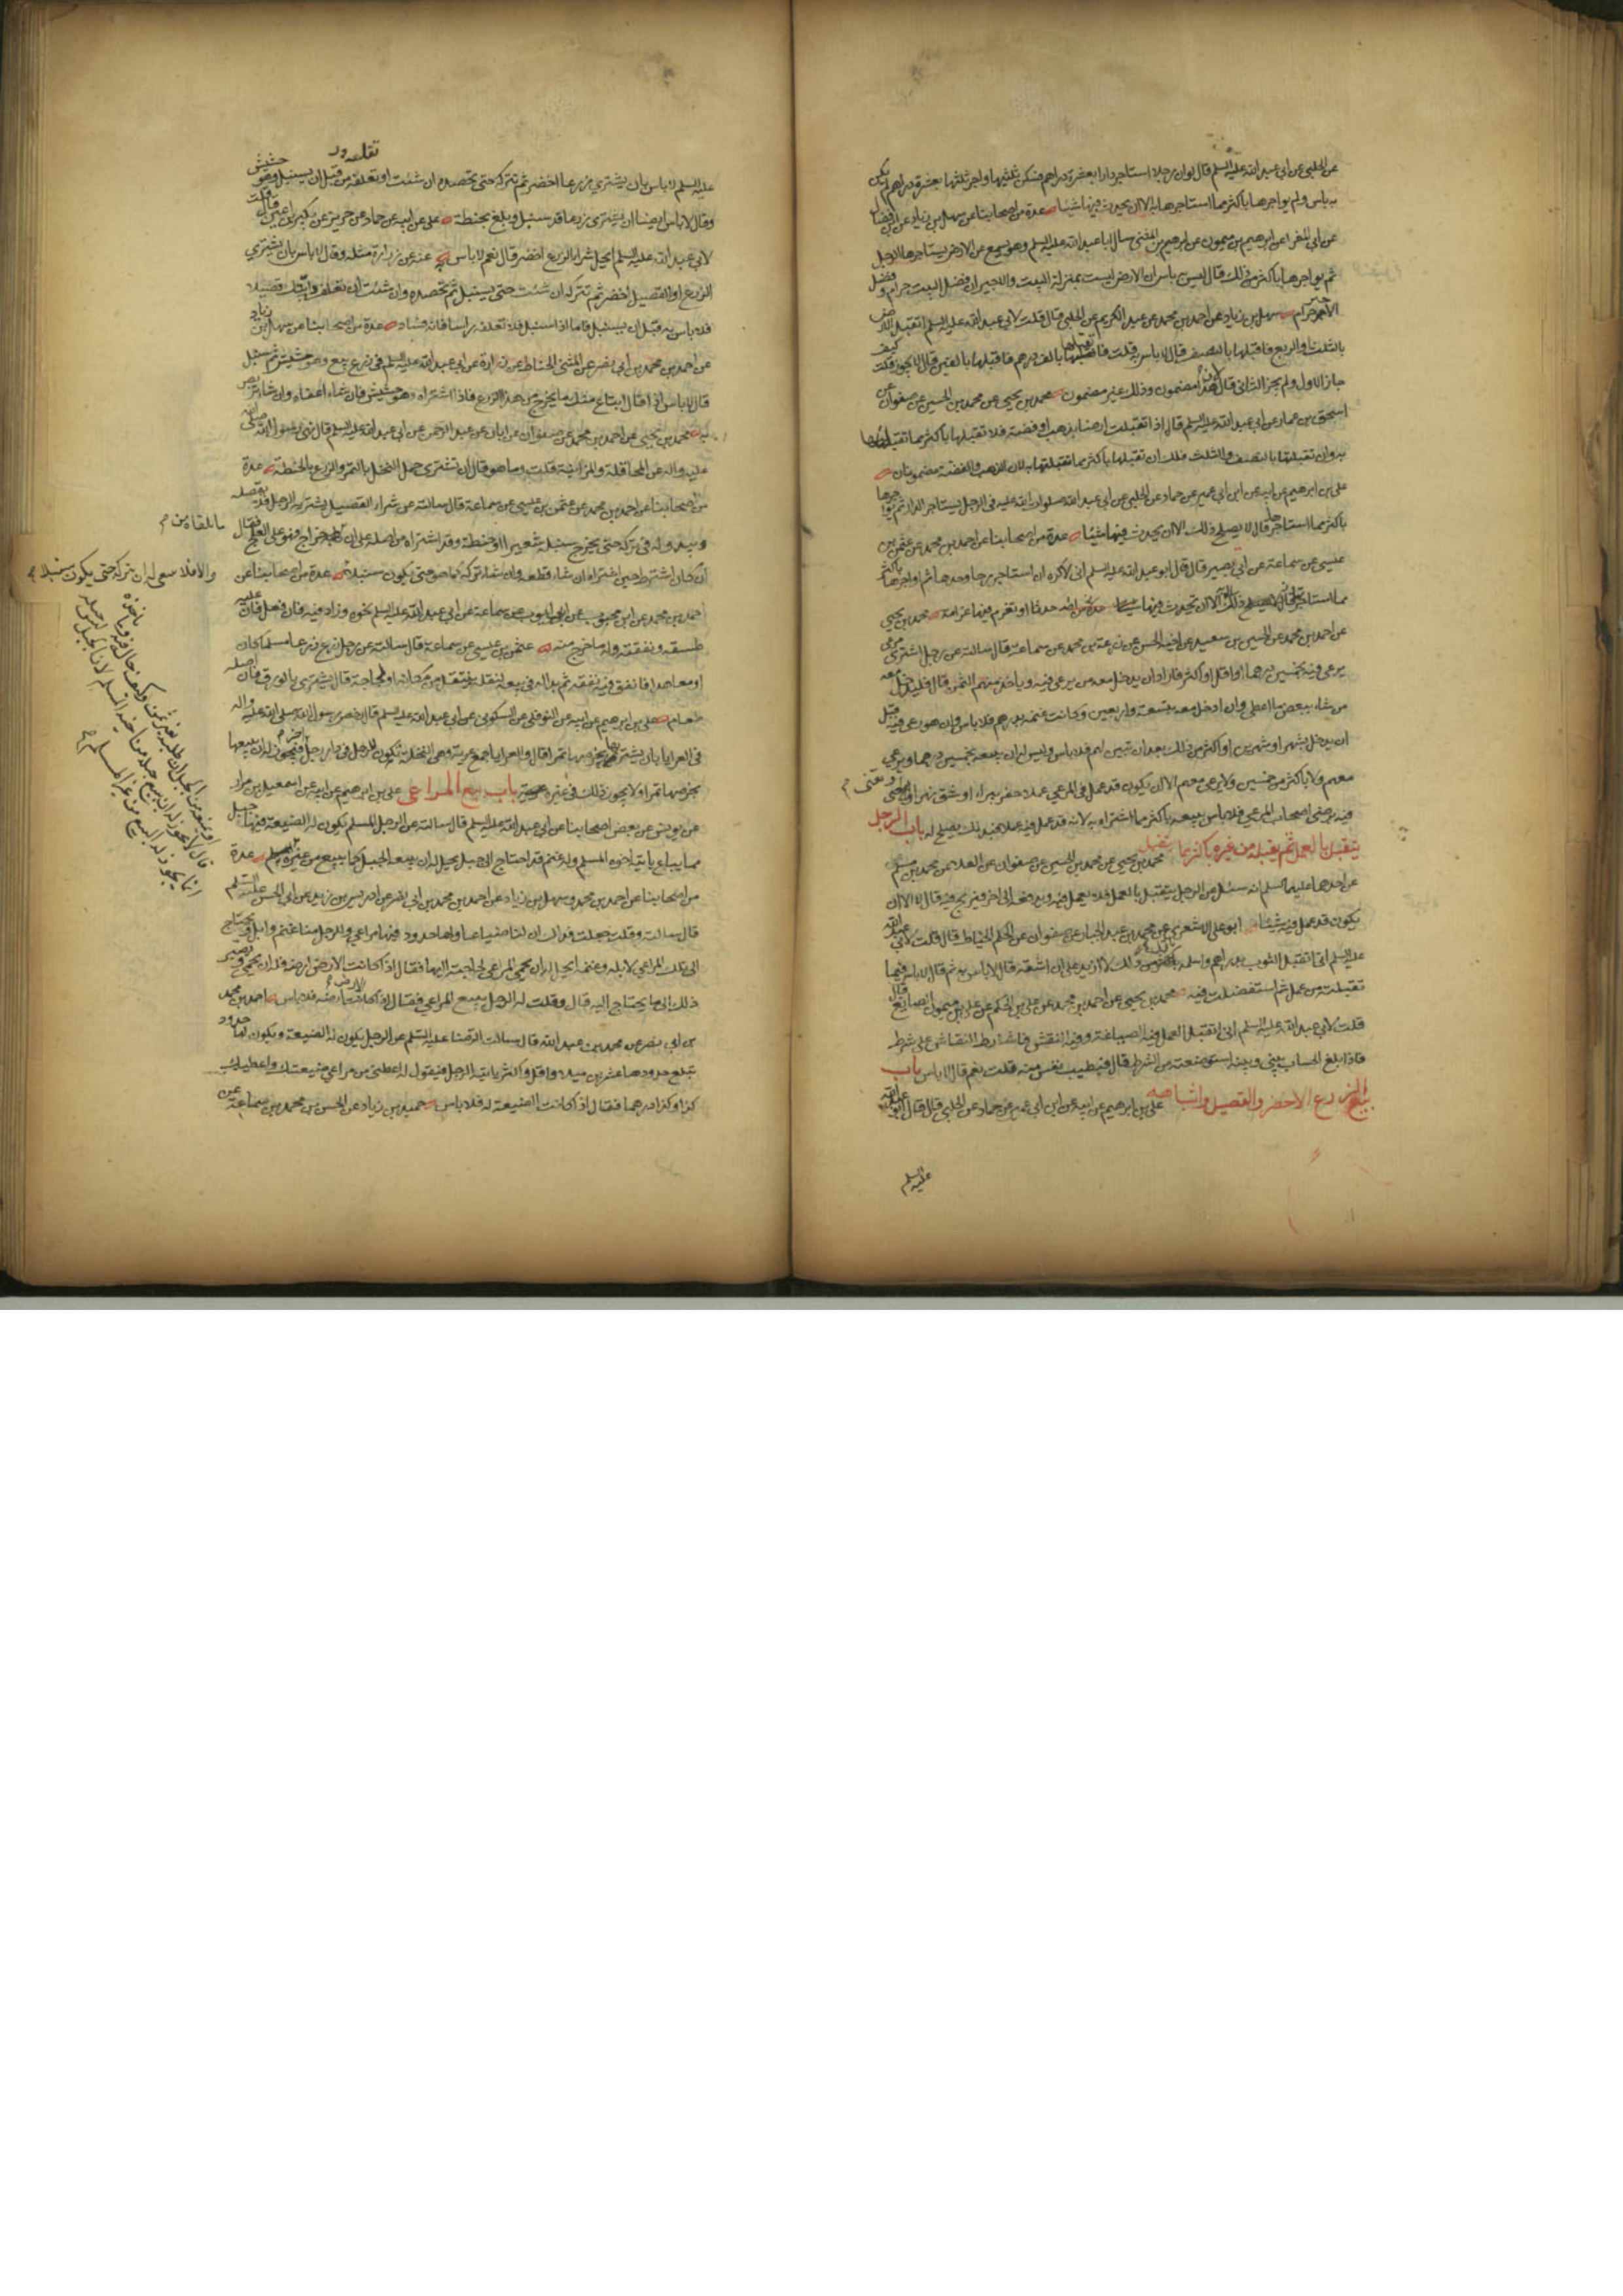 عن الحلبي عن ابي عبد الله عليه السلم قال لو ان رجلا استاجر دارا بعشرة دراهم فسكن ثلثيها واجر ثلثها بعشرة دراهم لم يكن
به باس ولم يواجرها باكثر مما استاجرها به الا ان يحدث فيها شيئا عدة من اصحابنا عن سهل بن زياد عن ابن فضال
عن ابي المغرا عن ابرهيم بن ميمون عن ابرهيم بن المثنى سال ابا عبد الله عليه السلم وهو يسمع عن الارض يستاجرها الرجل
ثم يواجرها باكثر من ذلك قال ليس به باس ان الارض ليست بمنزلة البيت والاجير ان فضل البيت حرام وفضل
الاجير حرام سهل بن زياد عن احمد بن محمد عن عبد الكريم عن الحلبي قال قلت لابي عبد الله عليه السلم اتقبل الارض
بالثلث والربع فاقبلها بالنصف قال لا باس به قلت فاتقبلها بالف درهم فاقبلها بالفين قال لا يجوز قلت كيف
جاز الاول ولم يجز الثاني قال لان هذا مضمون وذلك غير مضمون محمد بن يحيى عن محمد بن الحسين عن صفوان عن
اسحق بن عمار عن ابي عبد الله عليه السلم قال اذا تقبلت ارضا بذهب او فضة فلا تقبلها باكثر مما تقبلتها
به وان تقبلتها بالنصف والثلث فلك ان تقبلها باكثر مما تقبلتها به لان الذهب والفضة مضمونان
علي بن ابرهيم عن ابيه عن ابن ابي عمير عن حماد عن الحلبي عن ابي عبد الله صلوات الله عليه في الرجل يستاجر الدار ثم يواجرها
باكثر مما استاجرها قال لا يصلح ذلك الا ان يحدث فيها شيئا عدة من اصحابنا عن احمد بن محمد عن عثمن بن
عيسى عن سماعة عن ابي بصير قال قال ابو عبد الله عليه السلم اني لاكره ان استاجر رحا وحدها ثم اواجرها باكثر
مما استاجرتها الا ان تحدث فيها حدثا او تغرم فيها غرامة محمد بن يحيى
عن احمد بن محمد عن الحسين بن سعيد عن اخيه الحسن عن زرعة بن محمد عن سماعة قال سالته عن رجل اشترى مرعى
يرعى فيه بخمسين درهما او اقل او اكثر فاراد ان يدخل معه من يرعى فيه وياخذ منهم الثمن قال فليدخل معه
من شاء ببعض ما اعطى وان ادخل معه بتسعة واربعين وكانت غنمه بدرهم فلا باس وان هو رعى فيه قبل
ان يدخل بشهر او شهرين او اكثر من ذلك بعد ان تبين لهم فلا باس وليس له ان يبيعه بخمسين درهما ويرعى
معهم ولا باكثر من خمسين ولا يرعى معهم الا ان يكون قد عمل في المرعى عملا حفر بيرا او شق نهرا
فيه برضى اصحاب المرعى فلا باس ببيعه باكثر مما اشتراه به لانه قد عمل فيه عملا فبذلك يصلح له باب الرجل
يتقبل بالعمل ثم يقبله من غيره باكثر مما تقبل محمد بن يحيى عن محمد بن الحسين عن صفوان عن العلا عن محمد بن مسلم
عن احدهما عليهما السلم انه سئل عن الرجل يتقبل بالعمل فلا يعمل فيه ويدفعه الى اخر فيربح فيه قال لا الا ان
يكون قد عمل فيه شيئا ابو علي الاشعري عن محمد بن عبد الجبار عن صفوان عن الحكم الخياط قال قلت لابي عبد الله
عليه السلم اني اتقبل الثوب بدراهم واسلمه باكثر من ذلك لا ازيد على ان اشقه قال لا باس به ثم قال لا باس فيما
تقبلت من عمل ثم استفضلت فيه محمد بن يحيى عن احمد بن محمد عن علي بن الحكم عن علي بن ميمون الصايغ قال
قلت لابي عبد الله عليه السلم اني اتقبل العمل فيه الصياغة وفيه النقش فاشارط النقاش على شرط
فاذا بلغ الحساب بيني وبينه استوضعته من الشرط قال فبطيب نفس منه قلت نعم قال لا باس باب
بيع الزرع الاخضر والقصيل واشباهه علي بن ابرهيم عن ابيه عن ابن ابي عمير عن حماد عن الحلبي قال قال ابو عبد الله
عليه السلم
عليه السلم لا باس بان يشتري زرعا اخضر ثم تتركه حتى تحصده ان شئت او تعلفه من قبل ان يسنبل وهو حشيش
وقال لا باس ايضا ان يشتري زرعا قد سنبل وبلغ بحنطة علي عن ابيه عن حماد عن حريز عن بكير بن اعين قال قلت
لابي عبد الله عليه السلم ايحل شراء الزرع اخضر قال نعم لا باس به عنه عن زرارة مثله وقال لا باس بان يشتري
الزرع او القصيل اخضر ثم تتركه ان شئت حتى يسنبل ثم تحصده وان شئت ان تعلف دابتك قصيلا
فلا باس به قبل ان يسنبل فاما اذا سنبل فلا تعلفه راسا فانه فساد عدة من اصحابنا عن سهل بن زياد
عن احمد بن محمد بن ابي نصر عن المثنى الحناط عن زرارة عن ابي عبد الله عليه السلم في زرع بيع وهو حشيش ثم سنبل
قال لا باس اذا قال ابتاع منك ما يخرج من هذا الزرع فاذا اشتراه وهو حشيش فان شاء اعفاه وان شاء تربص
به محمد بن يحيى عن احمد بن محمد عن صفوان عن ابان عن عبد الرحمن عن ابي عبد الله عليه السلم قال نهى رسول الله صلى الله
عليه واله عن المحاقلة والمزابنة قلت وما هو قال ان تشتري حمل النخل بالتمر والزرع بالحنطة عدة
من اصحابنا عن احمد بن محمد عن عثمن بن عيسى عن سماعة قال سالته عن شراء القصيل يشتريه الرجل فلا يقصله
ويبدو له في تركه حتى يخرج سنبله شعيرا او حنطة وقد اشتراه من اصله على ان خراج فهو على العلج فقال
ان كان اشترط حين اشتراه ان شاء قطعه وان شاء تركه كما هو حتى يكون سنبلا عدة من اصحابنا عن
احمد بن محمد عن ابن محبوب عن ابي ايوب عن سماعة عن ابي عبد الله عليه السلم نحوه وزاد فيه فان فعل فان عليه
طسقه ونفقته وله ما خرج منه عثمن بن عيسى عن سماعة قال سالته عن رجل زرع زرعا مسلما كان
او معاهدا فانفق فيه نفقة ثم بدا له في بيعه لنقله ينتقل من مكانه او لحاجة قال يشتري بالورق فان اصله
طعام علي بن ابرهيم عن ابيه عن النوفلي عن السكوني عن ابي عبد الله عليه السلم قال رخص رسول الله صلى الله عليه واله
في العرايا بان يشترى بخرصها تمرا قال والعرايا جمع عرية وهي النخلة تكون للرجل في دار رجل اخر فيجوز له ان يبيعها
بخرصها تمرا ولا يجوز ذلك في غيره باب بيع المراعى علي بن ابرهيم عن ابيه عن اسمعيل بن مرار
عن يونس عن بعض اصحابنا عن ابي عبد الله عليه السلم قال سالته عن الرجل المسلم يكون له الضيعة فيها جبل
مما يباع ياتيه اخوه المسلم وله غنم قد احتاج الى جبل يحل له ان يبيعه الجبل كما يبيع من غيره عدة
من اصحابنا عن احمد بن محمد وسهل بن زياد عن احمد بن محمد بن ابي نصر عن ادريس بن زيد عن ابي الحسن عليه السلم
قال سالته وقلت جعلت فداك ان لنا ضياعا ولها حدود وفيها مراعي وللرجل منا غنم وابل ويحتاج
الى تلك المراعي لابله وغنمه ايحل له ان يحمي المراعي لحاجته اليها فقال اذا كانت الارض ارضه فله ان يحمي ويصير
ذلك الى ما يحتاج اليه قال وقلت له الرجل يبيع المراعي فقال اذا كانت الارض ارضه فلا باس احمد بن محمد
بن ابي نصر عن محمد بن عبد الله قال سالت الرضا عليه السلم عن الرجل يكون له الضيعة ويكون لها حدود
تبلغ حدودها عشرين ميلا واقل واكثر ياتيه الرجل فيقول له اعطني من مراعي ضيعتك واعطيك
كذا وكذا درهما فقال اذا كانت الضيعة له فلا باس حميد بن زياد عن الحسن بن محمد بن سماعة عن
ما يلقاه من
والا فلا ينبغي له ان يتركه حتى يكون سنبلا
او يمنعه من الجبل ان طلبه بغير ثمن وكيف حاله فيه وما ياخذه
قال لا يجوز له ان يبيع جبله من اخيه المسلم لان الجبل ليس جبله
انما يجوز له البيع من غير المسلم